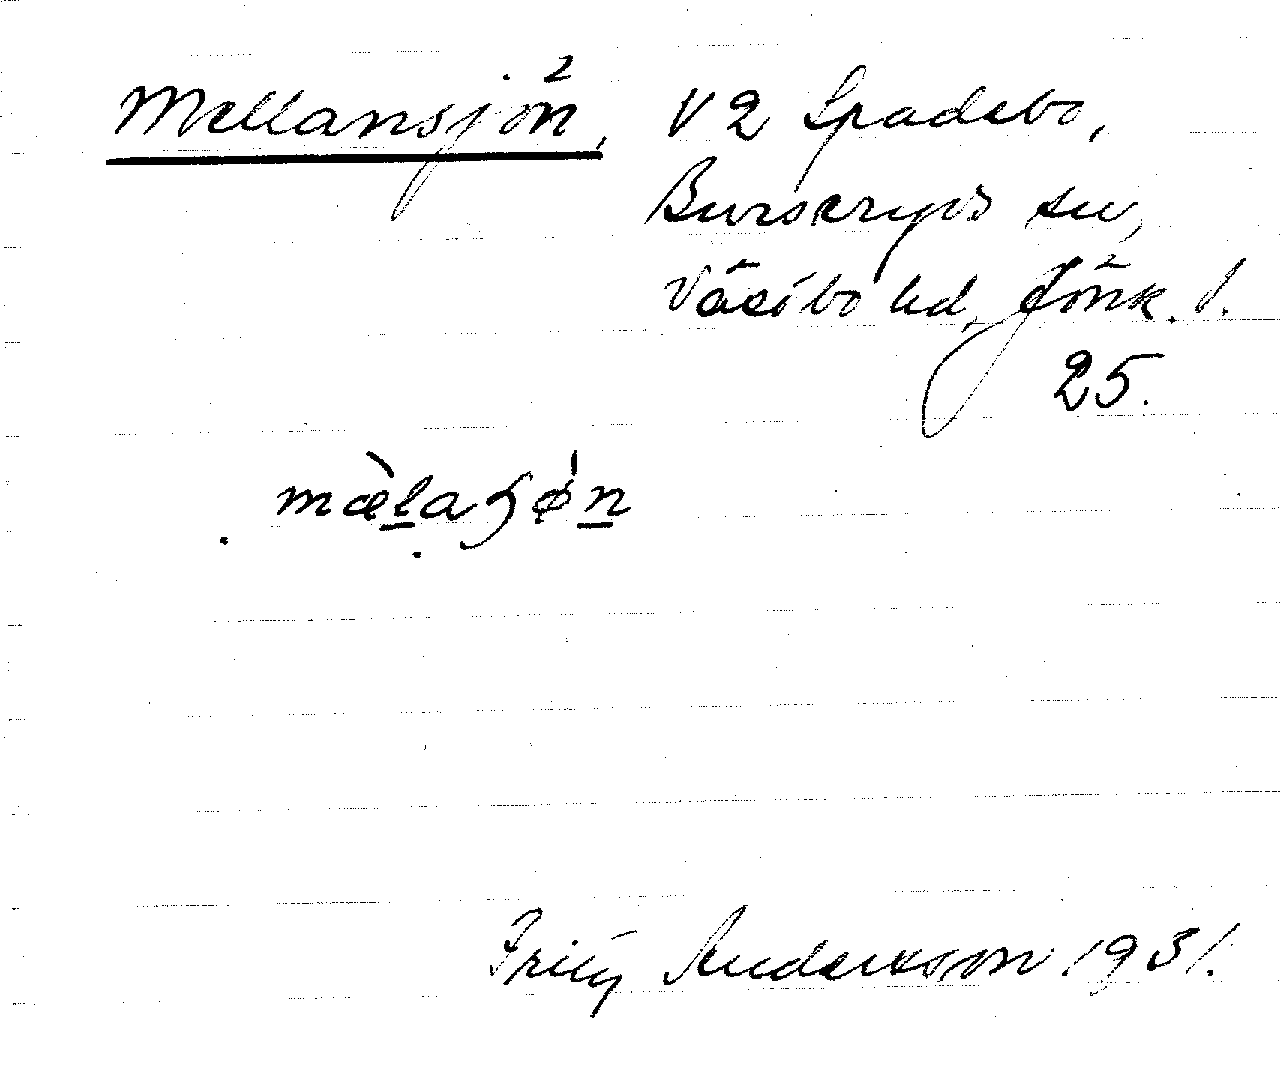 Mellansjön, V2 Spadebo,
Burseryds sn,
Västbo hd, Jönk. l.
25.
mælaʂøn
Fritz Andersson 1931.